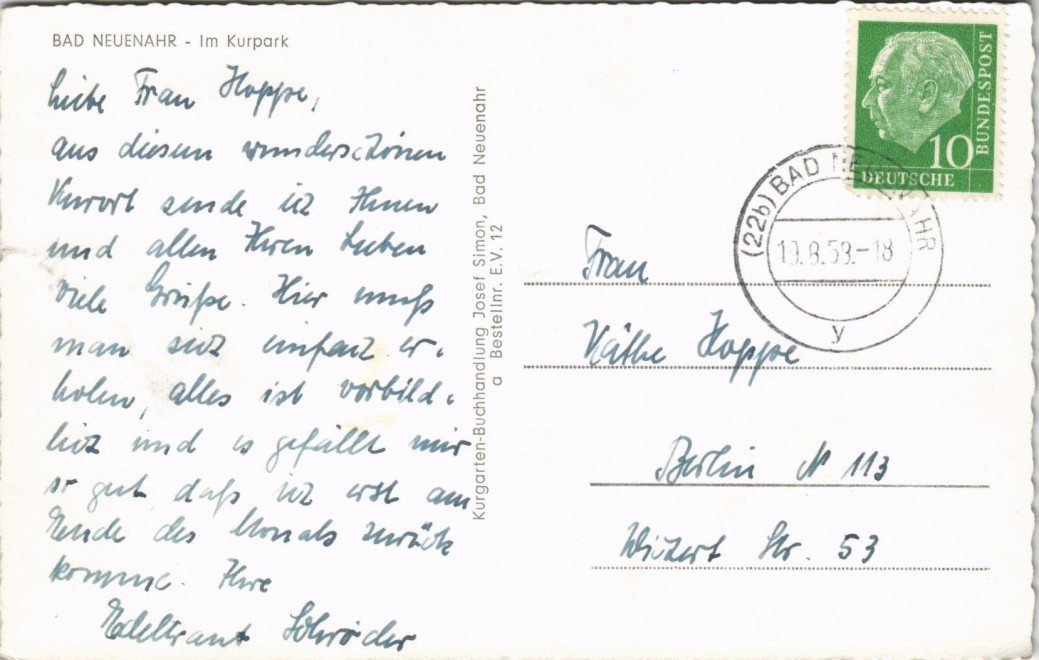 BAD NEUENAHR - Im Kurpark
Liebe Frau Hoppe,
aus diesem wunderschönen
Kurort sende ich Ihnen
und allen Ihren Lieben
viele Grüße. Hier muß
man sich einfach er-
holen, alles ist vorbild-
lich und es gefällt mir
so gut daß ich erst am
Ende des Monats zurück
komme. Ihre
Edeltraut Schröder
Kurgarten-Buchhandlung Josef Simon, Bad Neuenahr
a Bestellnr. E.V. 12
10
DEUTSCHE
BUNDESPOST
(22b) BAD NEUENAHR
-18
y
Frau
Käthe Hoppe
Berlin N 113
Wichert Str. 53